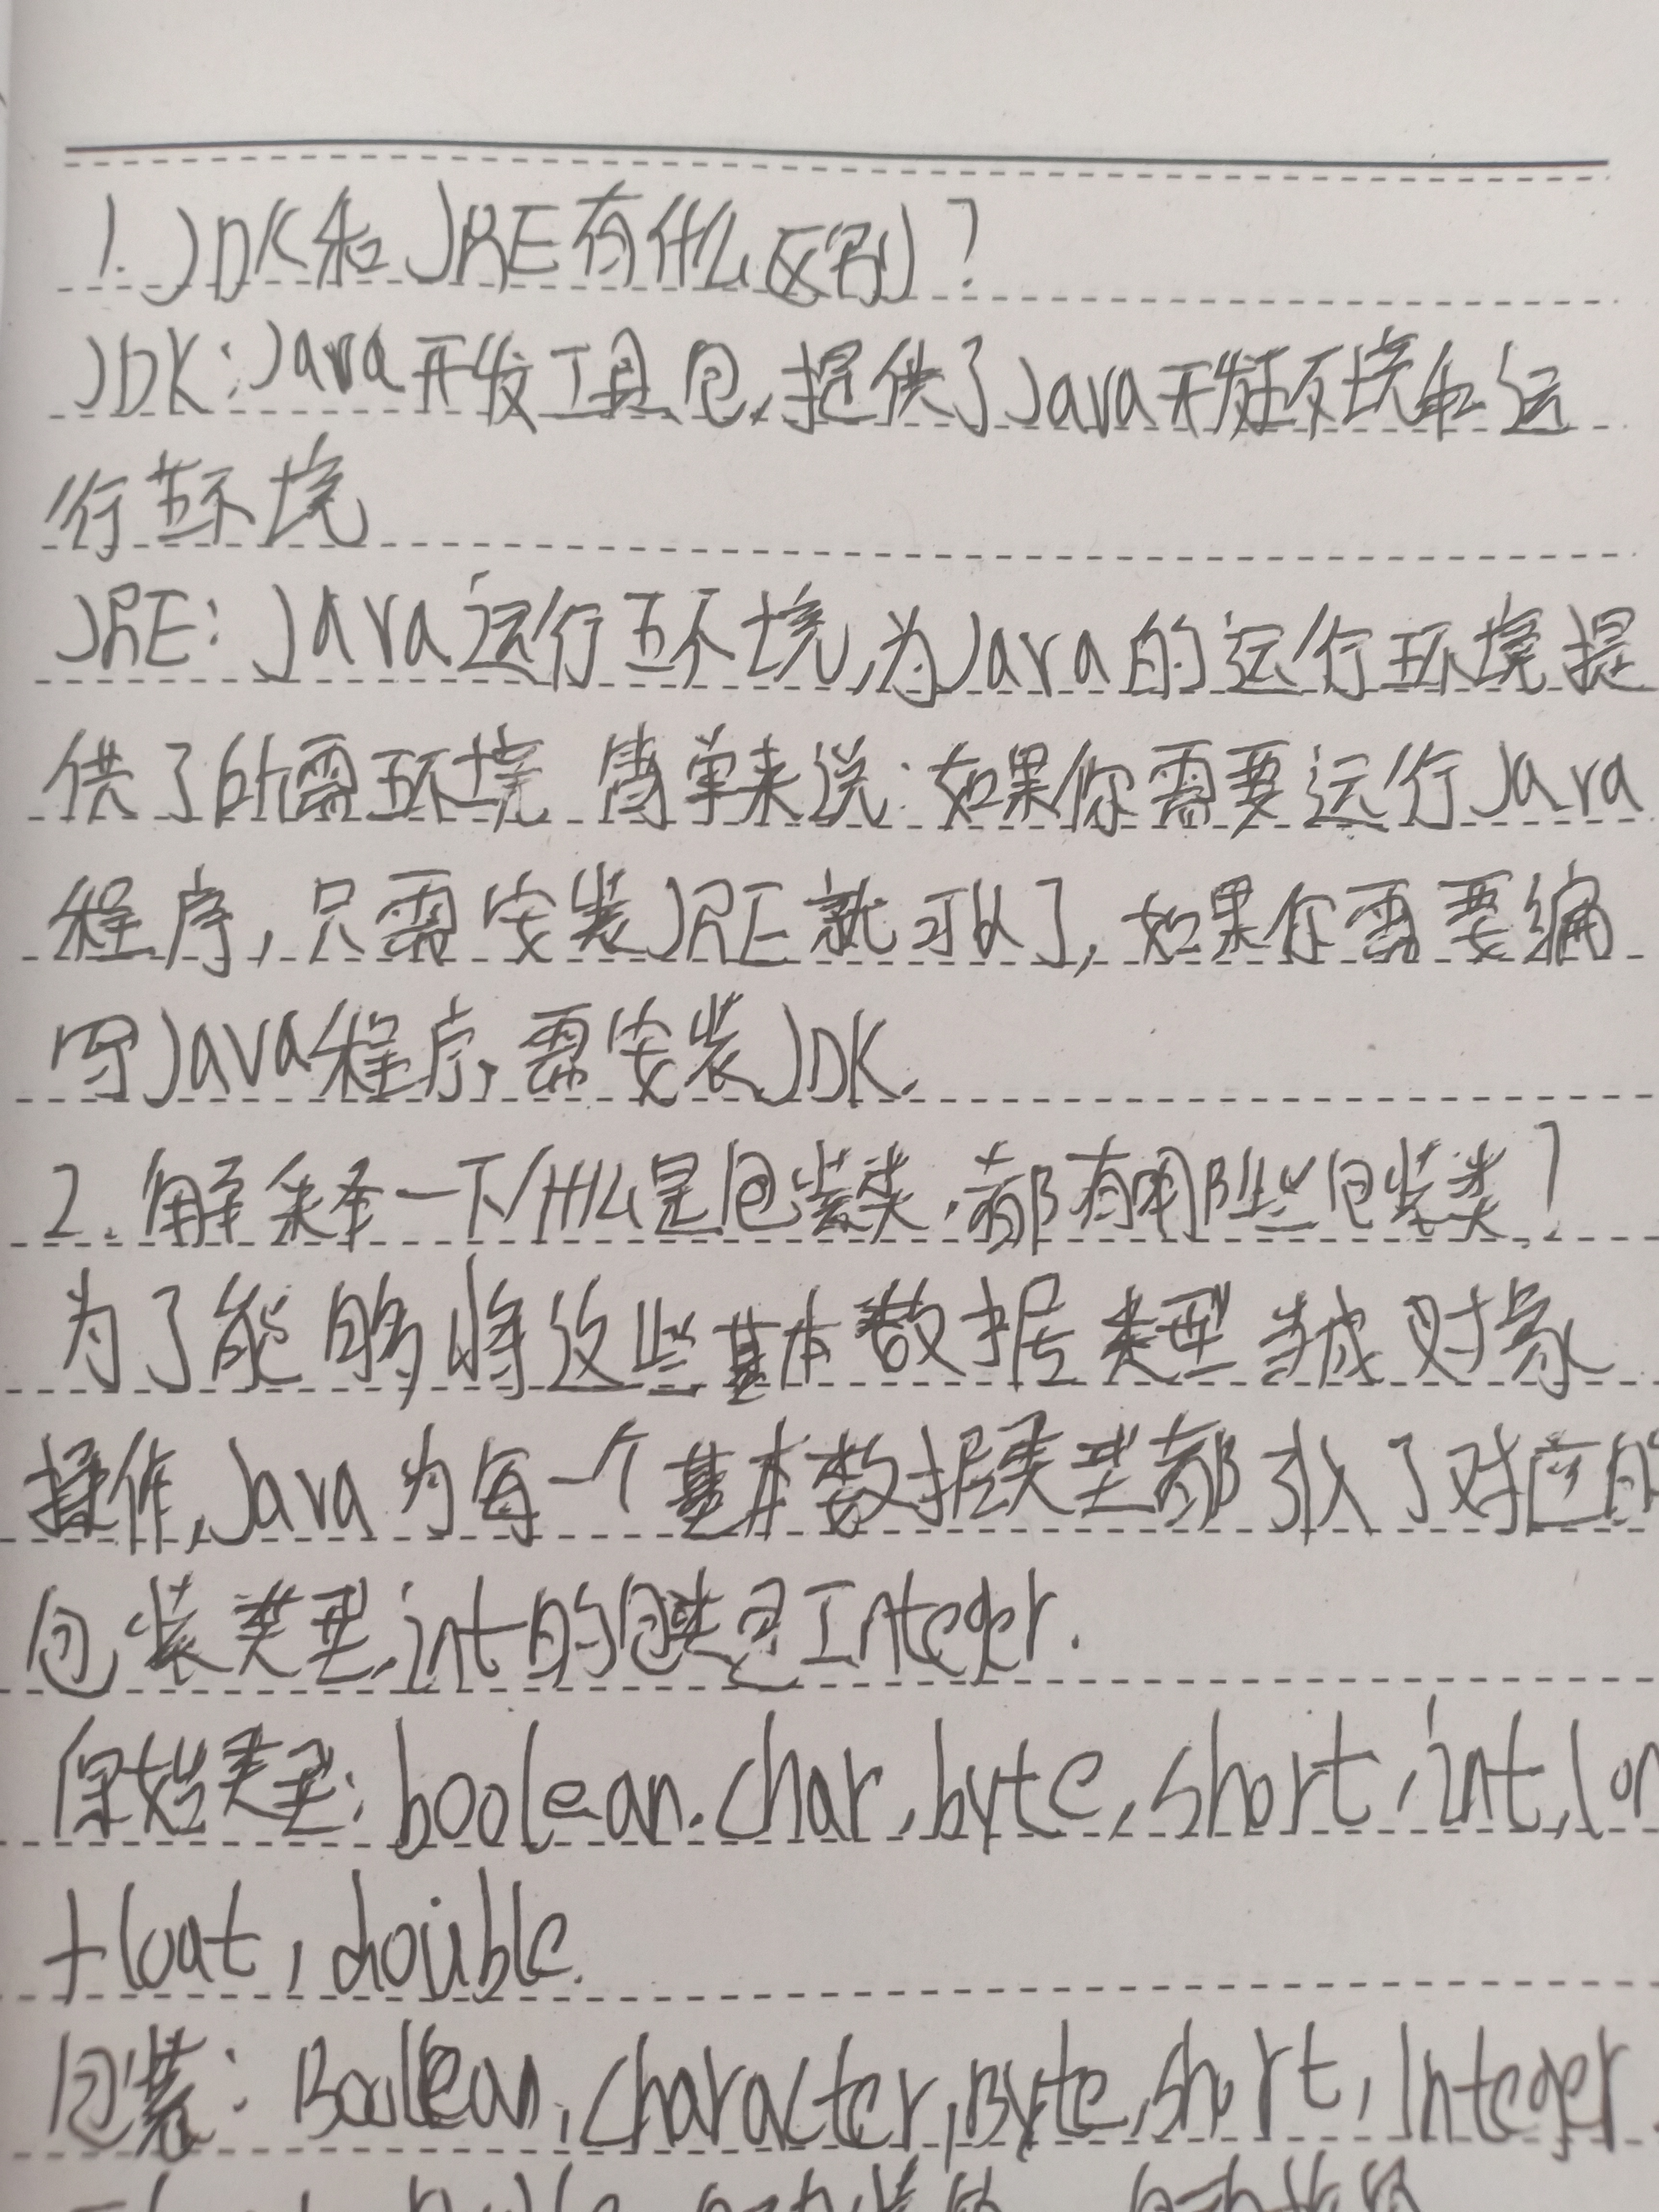 1. JDK和JRE有什么区别?
JDK:Java开发工具包,提供了Java开发环境和运
行环境
JRE: Java运行环境,为Java的运行环境提
供了所需环境 简单来说:如果你需要运行Java
程序,只需安装JRE就可以了,如果你需要编
写Java程序,需安装JDK.
2.解释一下什么是包装类.都有哪些包装类?
为了能够将这些基本数据类型当成对象
操作,Java为每一个基本数据类型都引入了对应的
包装类型,int的包装类是Integer.
原始类型:boolean.char,byte,short,int,lon
float,double.
包装:Boolean,character,Byte,short,Integer